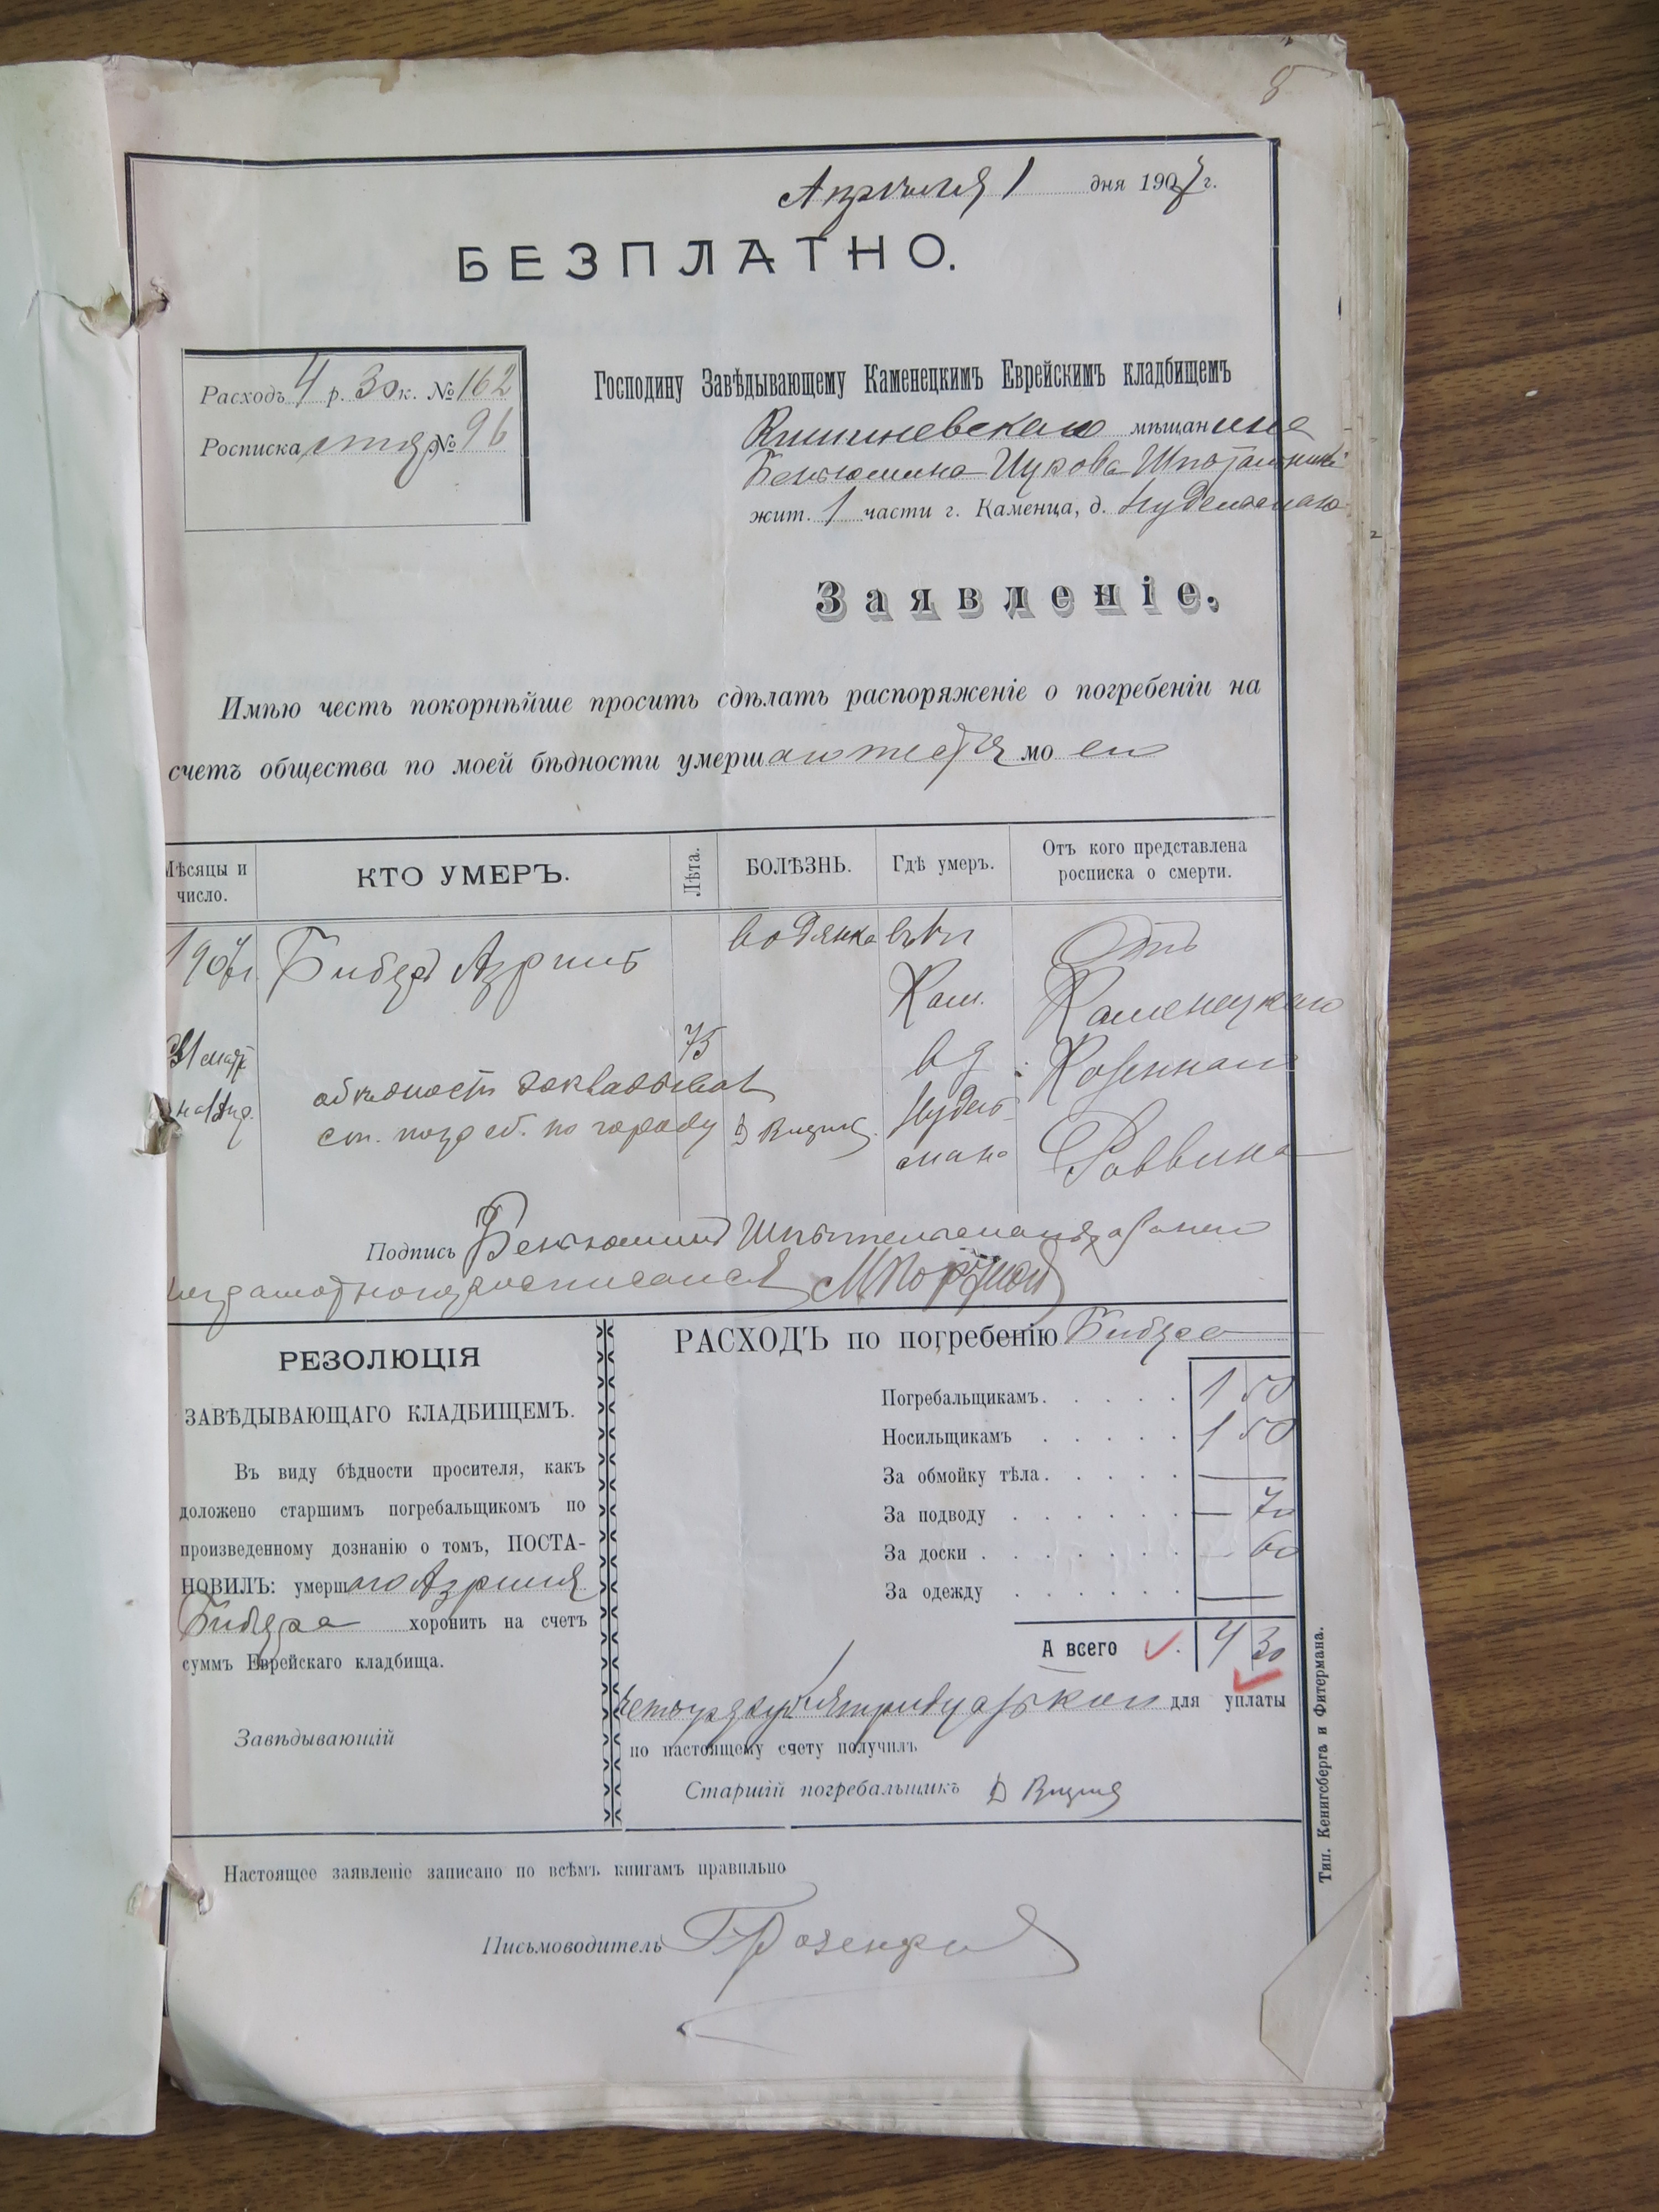 8
Апрѣля 1 дня 1907 г.
БЕЗПЛАТНО.
Расходъ 4 р. 30 к. № 162
Росписка № 96
Господину Завѣдывающему Каменецкимъ Еврейскимъ кладбищемъ
Кишиневскаго мѣщанина
Беньюмина
жит. 1 части г. Каменца, д. Нудельмана
Заявленіе.
Имѣю честь покорнѣйше просить сдѣлать распоряженіе о погребеніи на
счетъ общества по моей бѣдности умершаго тестя моего
Мѣсяцы и число. КТО УМЕРЪ. Лѣта. БОЛѢЗНЬ. Гдѣ умеръ. Отъ кого представлена росписка о смерти.
1907 г. Биберъ Азриль водянка въ г. Отъ
Кам. Каменецкаго
31 мар. 75 в д. Казеннаго
на 1 Апр. о бѣдности докладывалъ Нудель-
ст. погреб. по городу мана Раввина
Подпись Беньюминъ
неграмотного росписался
РЕЗОЛЮЦІЯ
ЗАВѢДЫВАЮЩАГО КЛАДБИЩЕМЪ.
Въ виду бѣдности просителя, какъ
доложено старшимъ погребальщикомъ по
произведенному дознанію о томъ, ПОСТА-
НОВИЛЪ: умершаго Азриля
Бибера хоронить на счетъ
суммъ Еврейскаго кладбища.
Завѣдывающій
РАСХОДЪ по погребенію Бибера
Погребальщикамъ. . . . . 1 50
Носильщикамъ . . . . . 1 50
За обмойку тѣла. . . . . —
За подводу . . . . . . — 70
За доски . . . . . . . — 60
За одежду . . . . . . —
А всего . 4 30
Четыре руб. тридцать коп для уплаты
по настоящему счету получилъ
Старшій погребальщикъ
Настоящее заявленіе записано по всѣмъ книгамъ правильно
Письмоводитель
Тип. Кенигсберга и Фитермана.